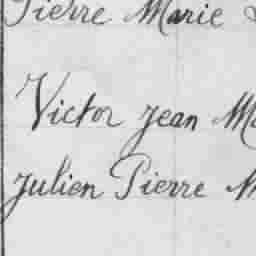 Pierre Marie
Victor Jean
Julien Pierre